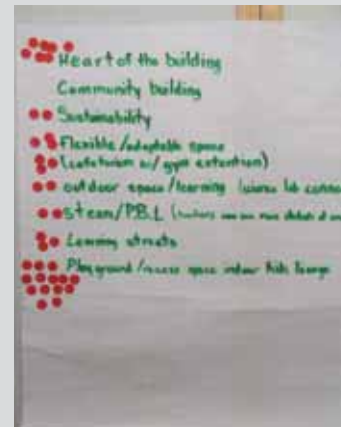 Heart of the building
Community building
Sustainability
Flexible/adaptable space
(cafetorium w/ gym extention)
outdoor space/learning (science lab conne
steam/P.B.L (teachers
Learning streets
Playground/recess space indoor kids lounge